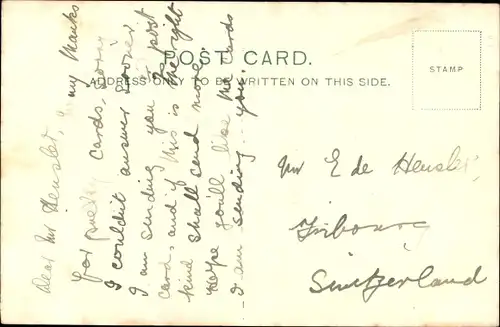 POST CARD.
ADDRESS ONLY TO BE WRITTEN ON THIS SIDE.
STAMP
Dear Mr Henslet, many thanks
for pretty cards, sorry
I couldn't answer sooner
I am sending you 12 post
cards, and if this is the right
kind shall send more
Hope you'll like the cards
I am sending you
Mr E de Hensler,
Fribourg
Switzerland